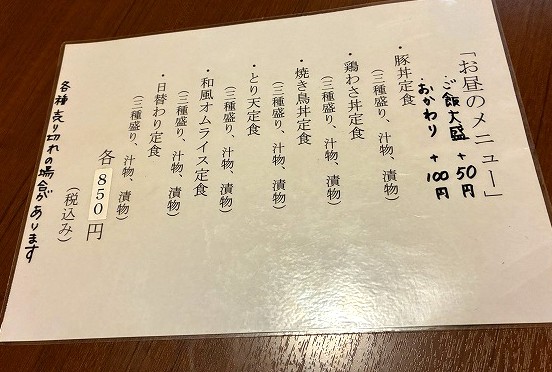 「お昼のメニュー」
・ご飯大盛 +50円
・おかわり +100円
・豚丼定食
（三種盛り、汁物、漬物）
・鶏わさ丼定食
（三種盛り、汁物、漬物）
・焼き鳥丼定食
（三種盛り、汁物、漬物）
・とり天定食
（三種盛り、汁物、漬物）
・和風オムライス定食
（三種盛り、汁物、漬物）
・日替わり定食
（三種盛り、汁物、漬物）
各850円
（税込み）
各種売り切れの場合があります